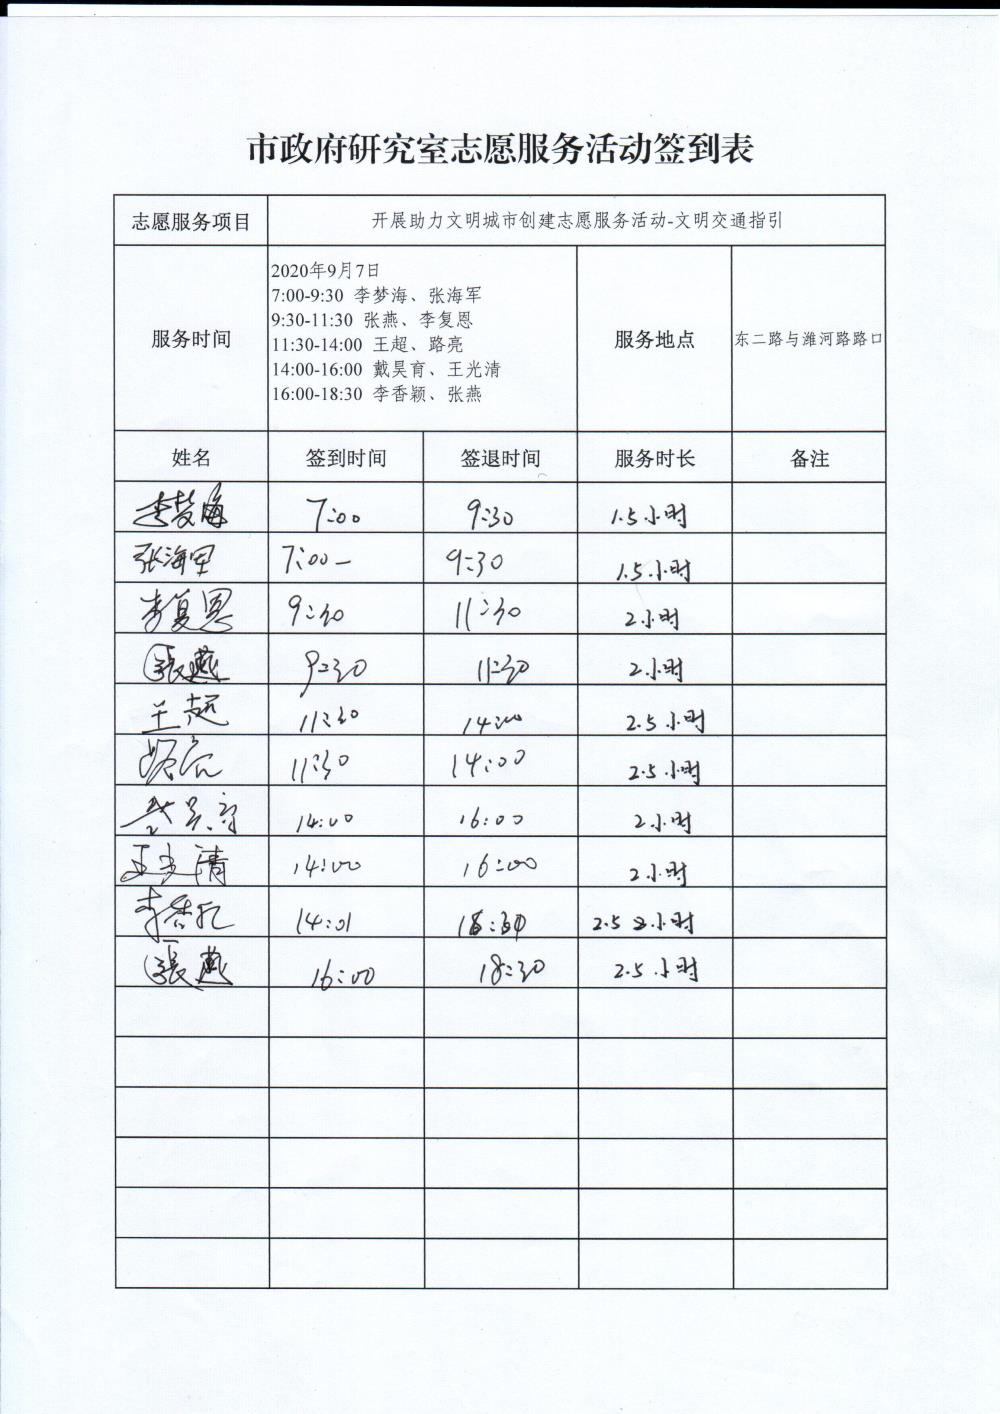 市政府研究室志愿服务活动签到表
志愿服务项目 开展助力文明城市创建志愿服务活动-文明交通指引
服务时间
2020年9月7日
7:00-9:30 李梦海、张海军
9:30-11:30 张燕、李复恩
11:30-14:00 王超、路亮
14:00-16:00 戴昊育、王光清
16:00-18:30 李香颖、张燕
服务地点 东二路与潍河路路口
姓名 签到时间 签退时间 服务时长 备注
李梦海 7:00 9:30 1.5小时
张海军 7:00 9:30 1.5小时
李复恩 9:30 11:30 2小时
張燕 9:30 11:30 2小时
王超 11:30 14:00 2.5小时
路亮 11:30 14:00 2.5小时
戴昊育 14:00 16:00 2小时
王光清 14:00 16:00 2小时
李香 14:01 2.5 小时
張燕 16:00 18:30 2.5小时